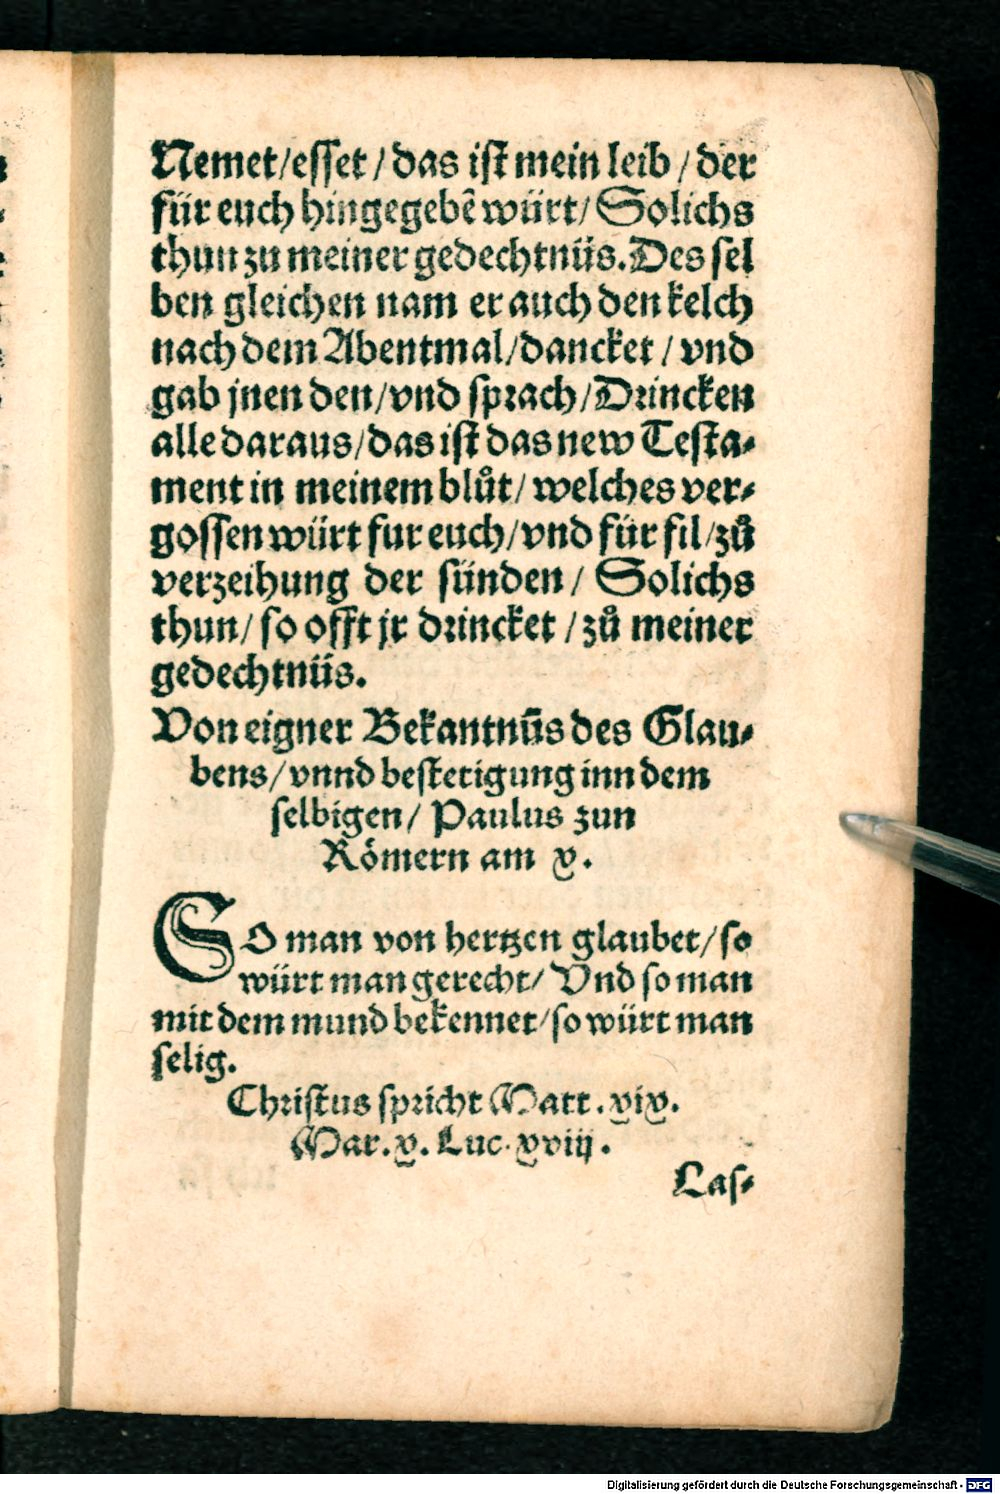 Nemet/esset/das ist mein leib/der
für euch hingegebẽ würt/Solichs
thun zu meiner gedechtnüs. Des sel
ben gleichen nam er auch den kelch
nach dem Abentmal/dancket/vnd
gab jnen den/vnd sprach/Drincken
alle daraus/das ist das new Testa-
ment in meinem blůt/welches ver-
gossen würt fur euch/vnd für fil/zů
verzeihung der sünden/Solichs
thun/so offt jr drincket/zů meiner
gedechtnüs.
Von eigner Bekantnüs des Glau-
bens/vnnd bestetigung inn dem
selbigen/Paulus zun
Römern am x.
SO man von hertzen glaubet/so
würt man gerecht/Vnd so man
mit dem mund bekennet/so würt man
selig.
Christus spricht Matt. xix.
Mar. x. Luc. xviij.
Las-
Digitalisierung gefördert durch die Deutsche Forschungsgemeinschaft - DFG